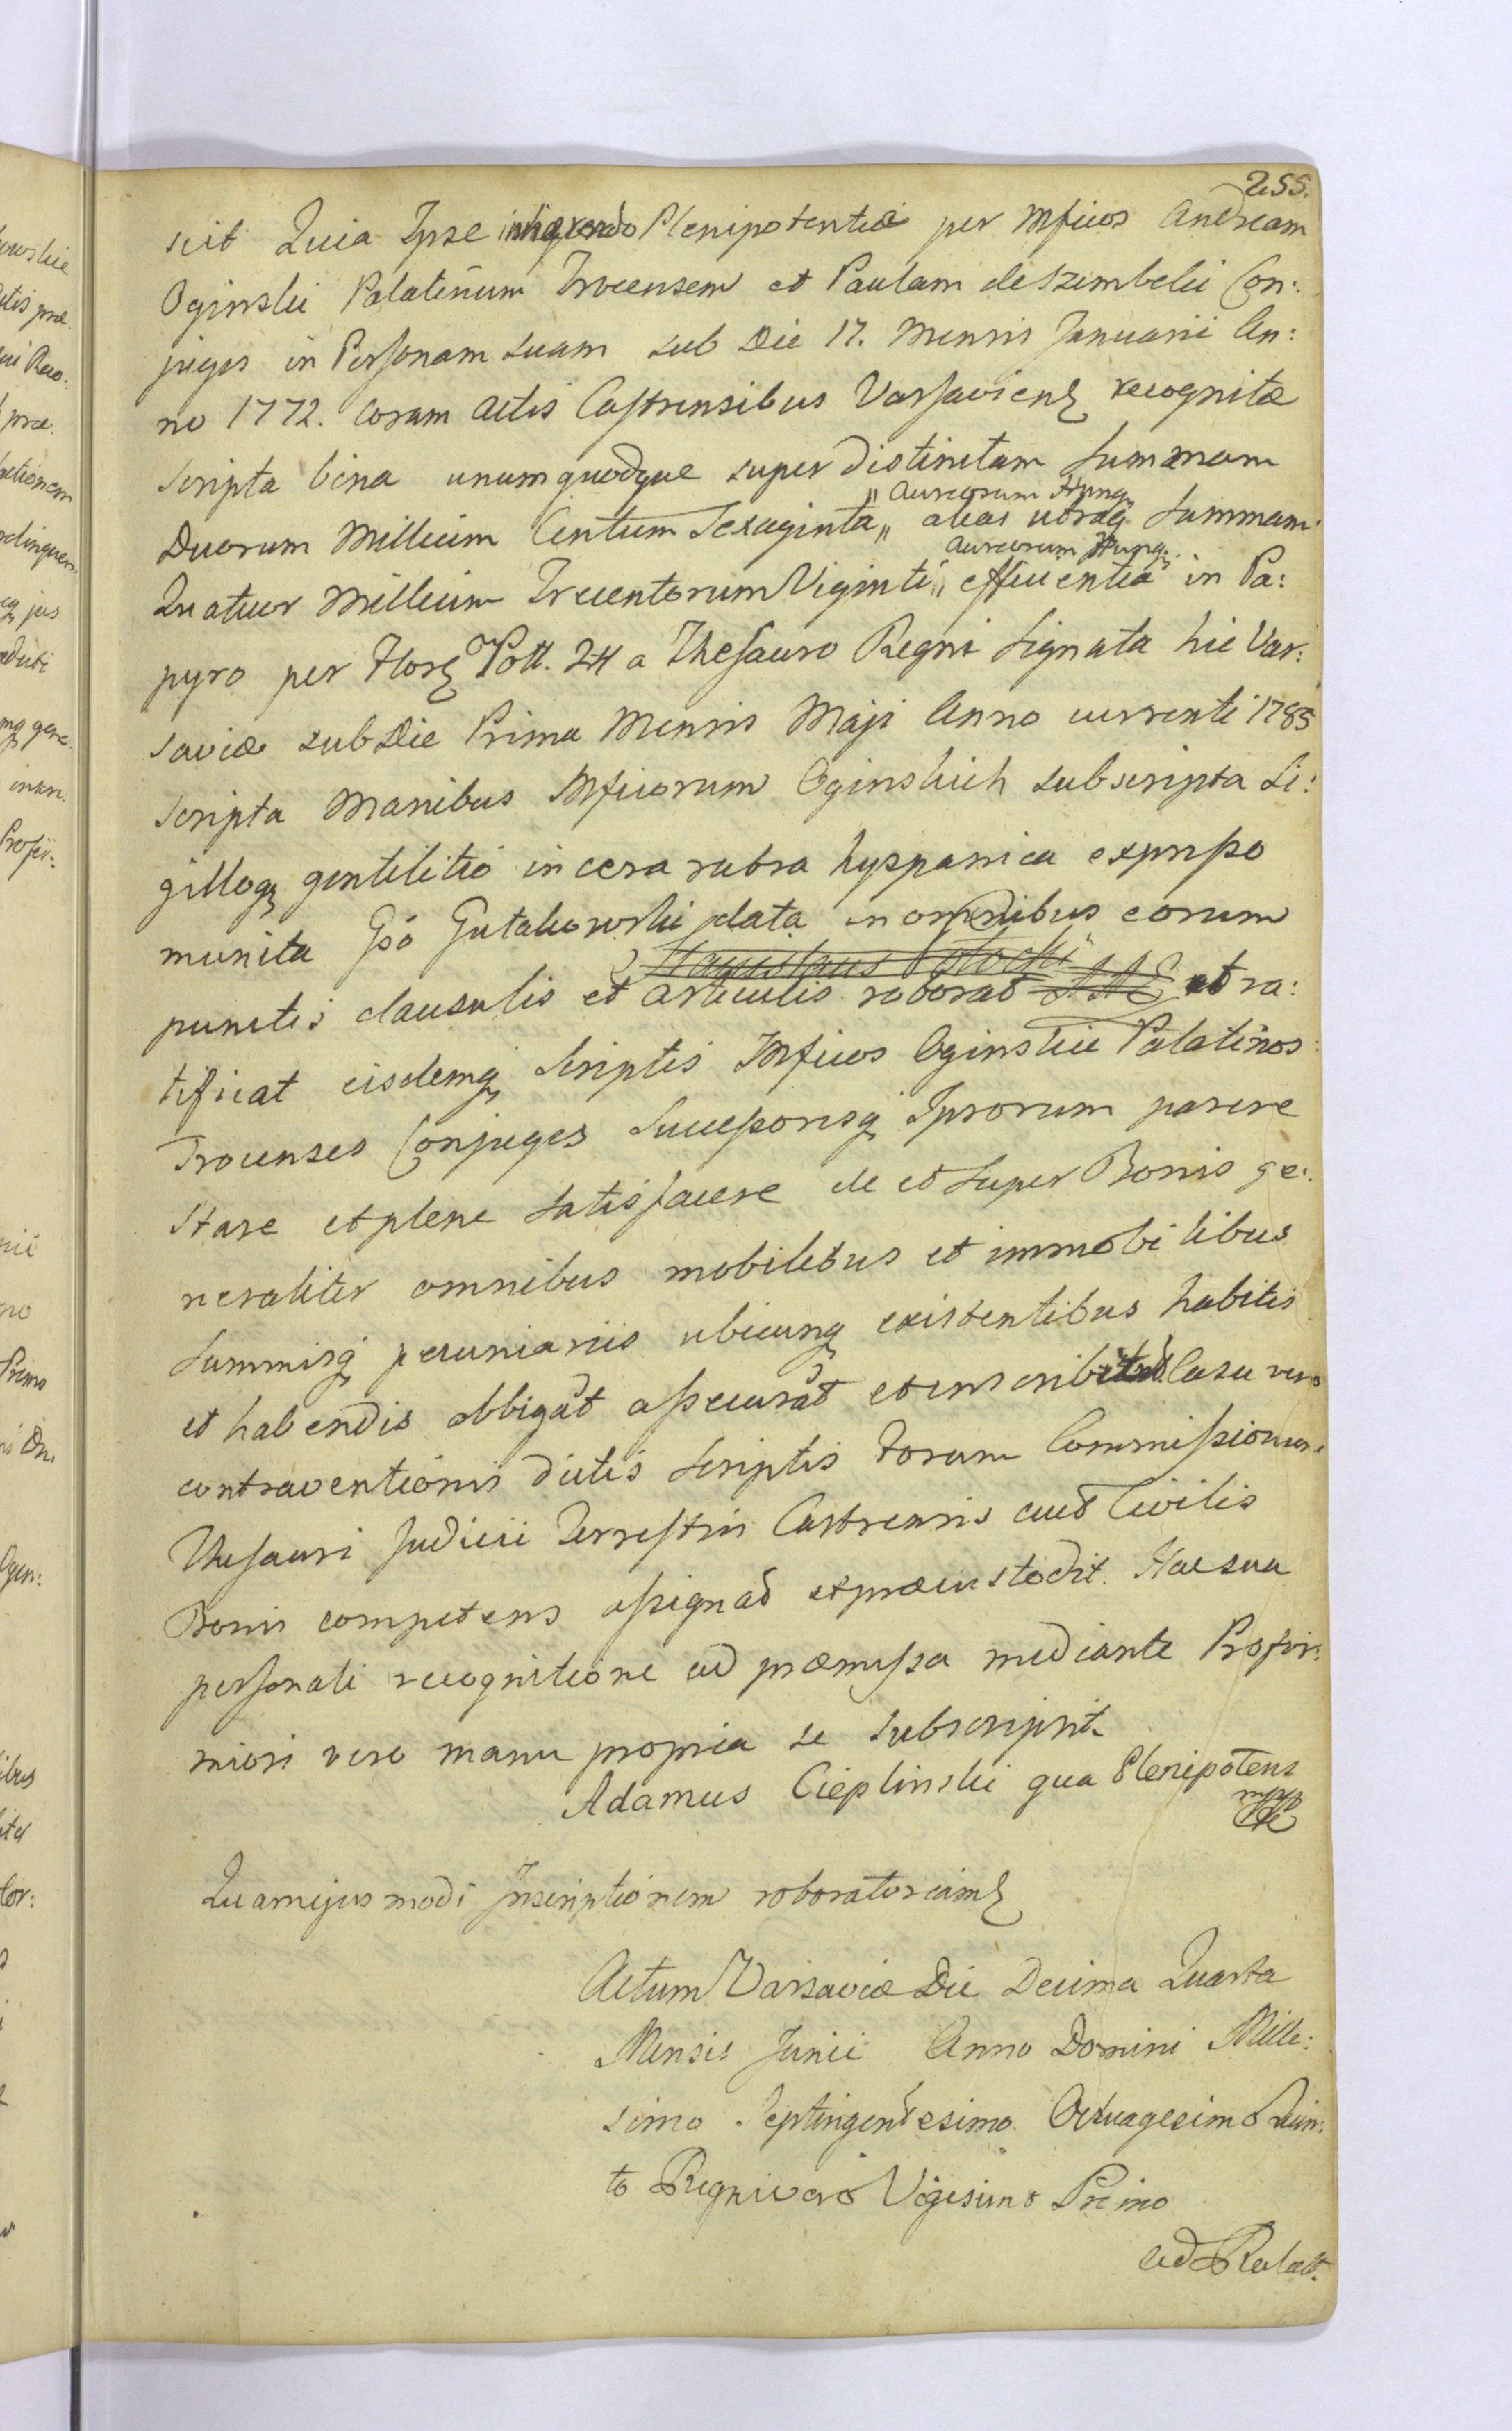 255.
scit Quia Ipse inhærendo Plenipotentiæ per Mficos Andream
Oginskii Palatinum Trocensem et Paulam de Szembeki Con:
juges in Personam suam sub Die 17. Mensis Januarii An:
no 1772. coram Actis Castrensibus Varsavien recognitæ
Scripta bina unumquodque super distinctam Summam
"Aureorum Hung
Duorum Millium Centum Sexaginta" alias utraq Summam
Aureorum Hung:
Quatuor Millium Trecentorum Viginti" efficientia in Pa:
pyro per Flor Poll. 24 a Thesauro Regni Signata hic Var:
saviæ sub Die Prima Mensis Maji Anno currenti 1785
scripta Manibus Mficorum Oginskich subscripta Si:
gilloq gentilitio in cera rubra hyspanica expresso
munita Gso Gutakowski data in omnibus eorum
Stanislaus Potocki
punctis clausulis et articulis roborat et ra:
tificat eisdemq Scriptis Mficos Oginskie Palatinos
Trocenses Conjuges Successoresq Ipsorum parere
stare et plene satisfacere de et super Bonis ge:
neraliter omnibus mobilibus et immobilibus
Summisq pecuniariis ubicunq existentibus habitis
et habendis obbigat assecurat et inscribit Casu vero
contraventionis dictis Scriptis Forum Commissionis
Thesauri Judicii Terrestris Castrensis aut Civilis
Bonis competens assignat et præcustodit. Hac sua
personali recognitione ad præmissa mediante Profir:
miori vero manu propria se subscripsit
Adamus Cieplinski qua Plenipotens
mpp
Quamejusmodi Inscriptionem roboratoriam
Actum Varsaviæ Die Decima Quarta
Mensis Junii Anno Domini Mille:
simo Septingentesimo Octuagesimo Quin:
to Regni vero Vigesimo Primo
ad Relat.